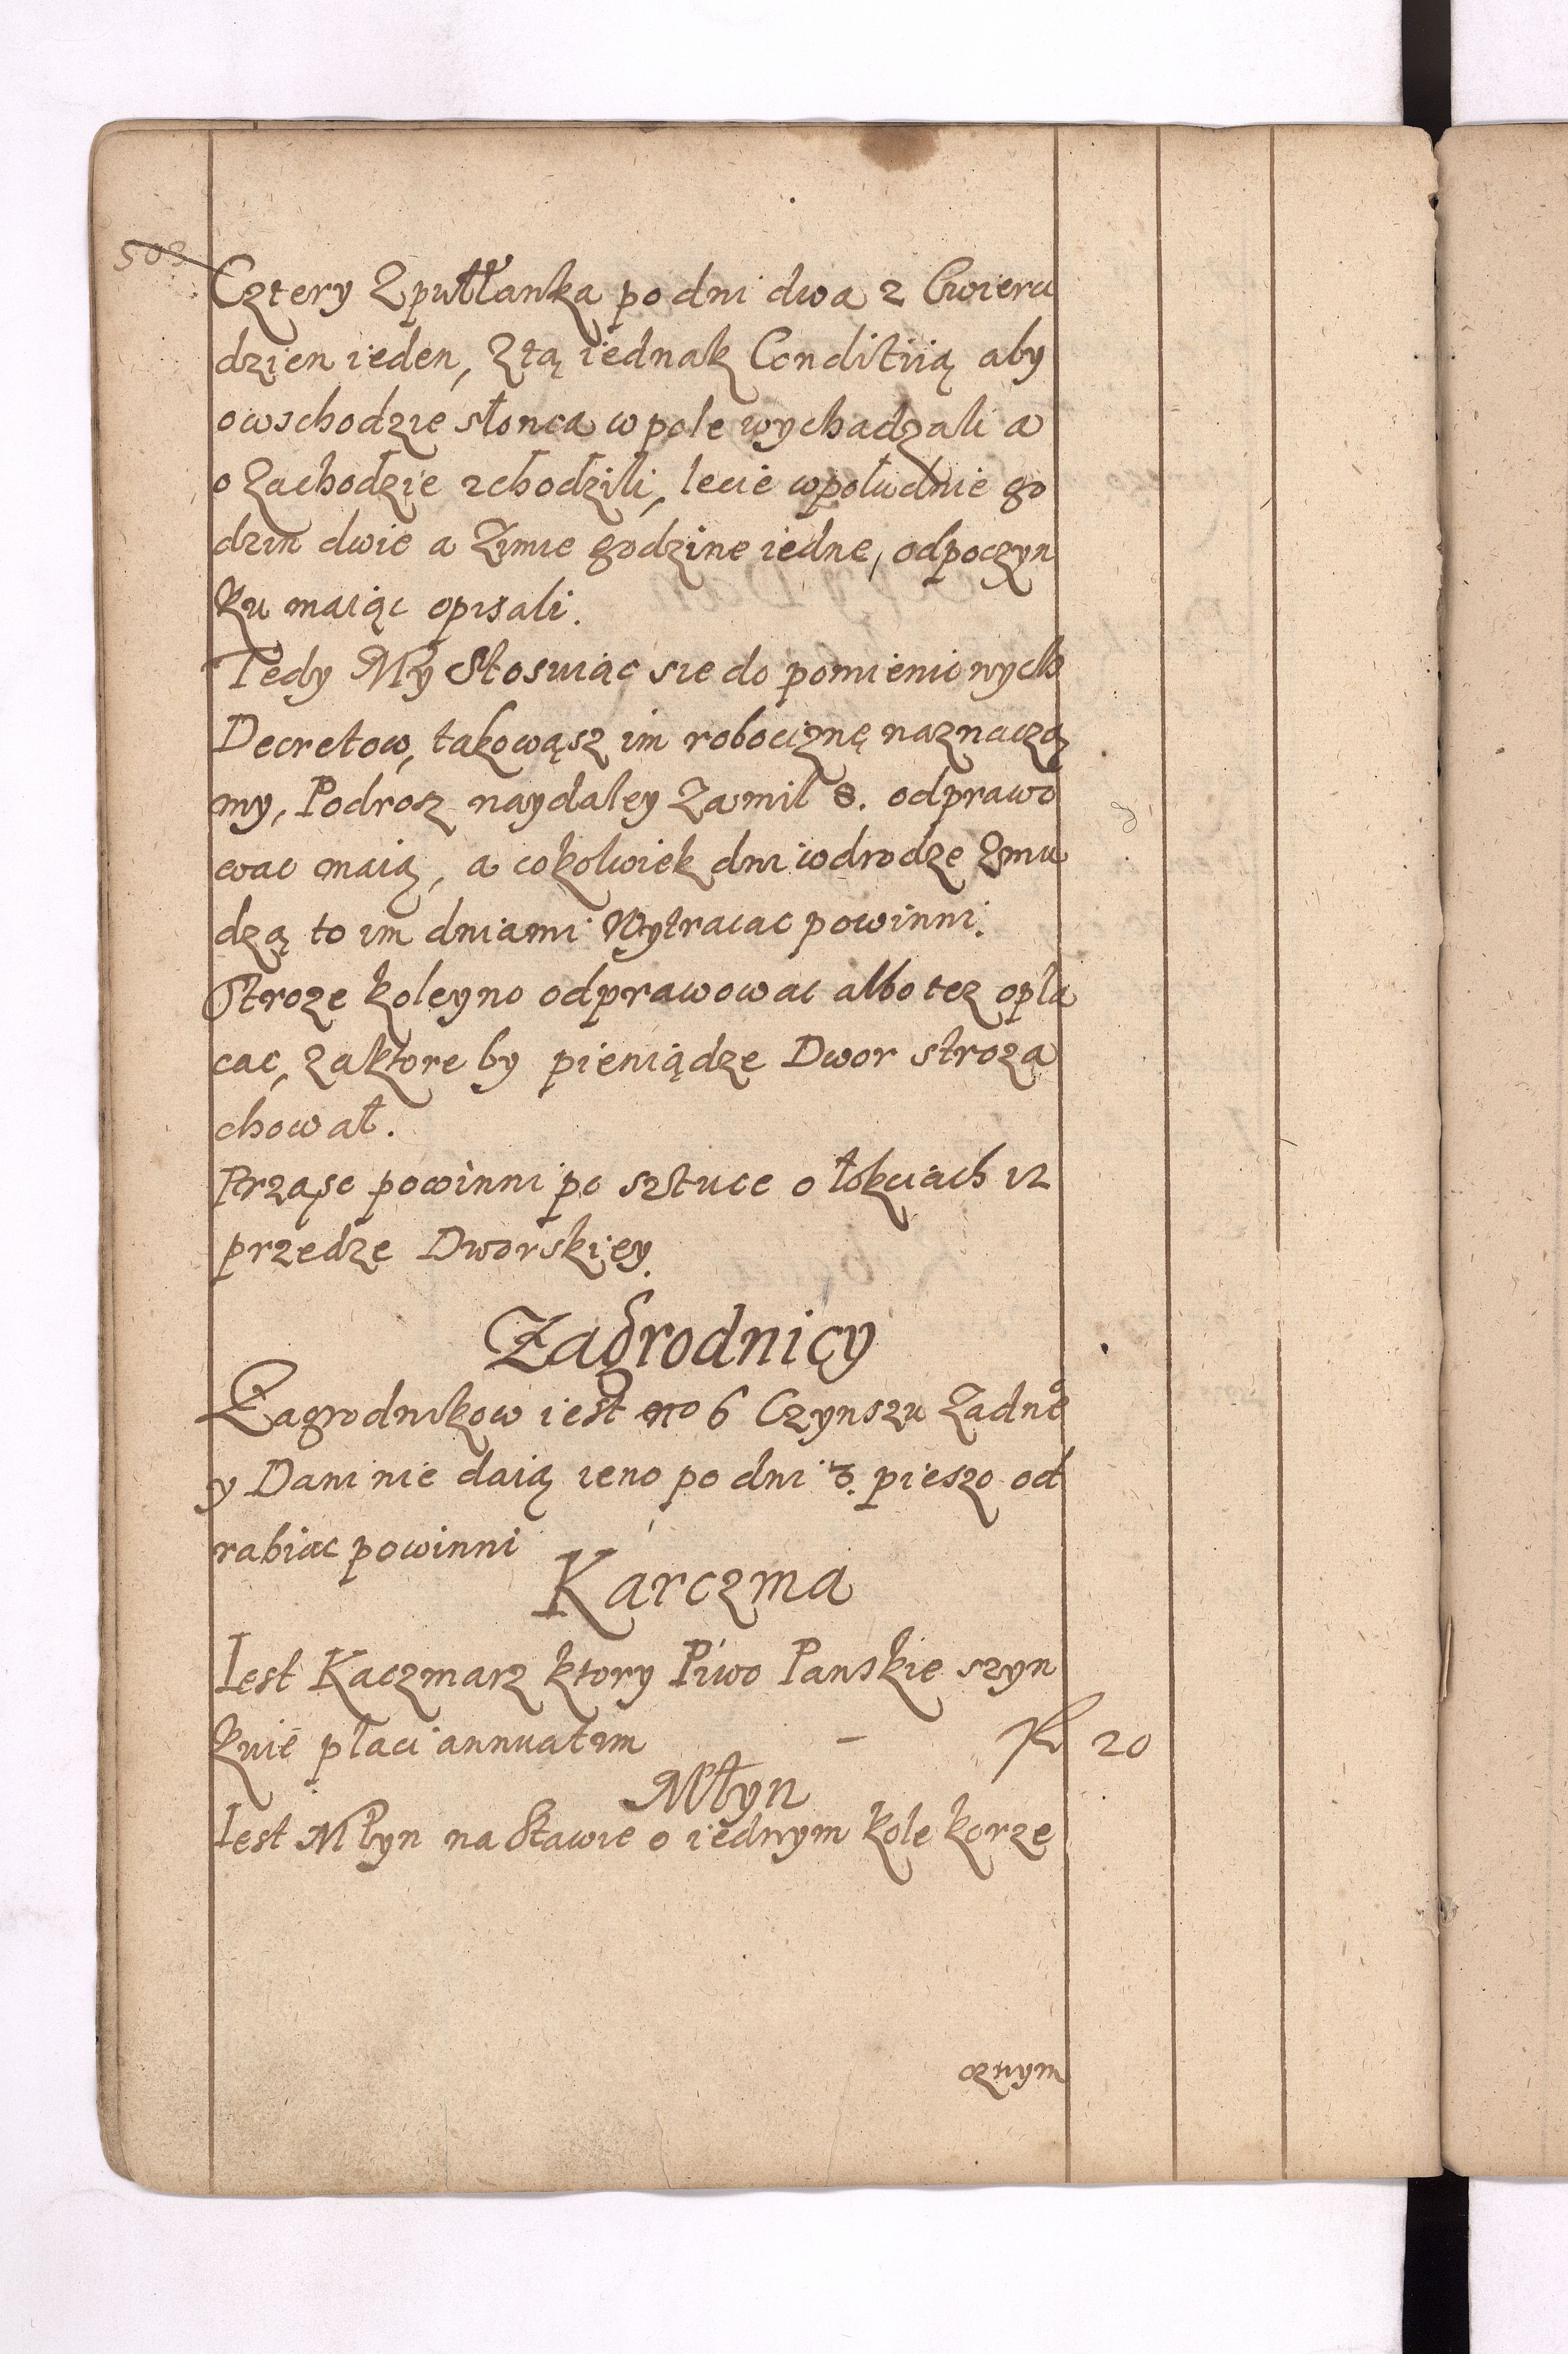 Cztery Zpułłanka po dni dwa z Cwierci
dzien ieden, Ztą iednak Conditiią aby
o wschodzie słonca w pole wychadzali a
o Zachodzie zchodzili, lecie wpołudnie go
dzin dwie a Zimie godzine iedne, odpoczyn
ku maiąc opisali.
Tedy My Stosuiąc sie do pomienionych
Decretow, takowąsz im robociznę naznacza
my, Podrosz naydaley Za mil 8. odprawo
wac maią, a cokolwiek dni w drodze Zmu
dzą to im dniami Wytracac powinni.
Stroze koleyno odprawowac albo tez opła
cac, za ktore by pieniądze Dwor stroza
chował.
Prząsc powinni po sztuce o łokciach 12
przedze Dworskiey.
Zagrodnicy
Zagrodnikow iest no 6 Czynszu Zadne̊
y Dani nie daią ieno po dni 3. pieszo od
rabiac powinni
Karczma
Iest Kaczmarz ktory Piwo Panskie szyn
kuie płaci annuatim - 20
Młyn
Iest Młyn na Stawie o iednym kole korze
cznym